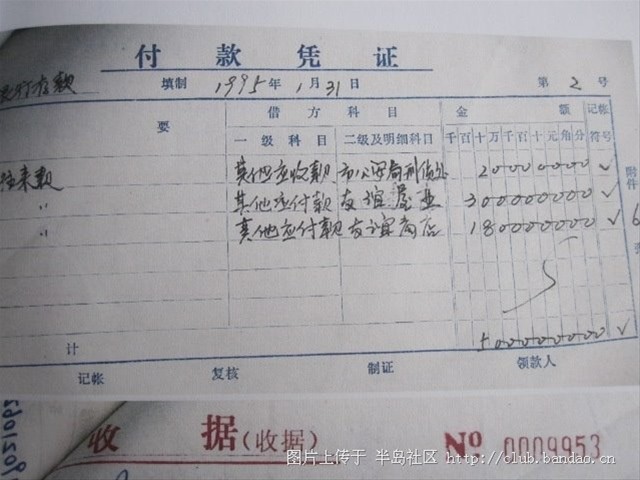 付款凭证
行存款 填制 1995年1月31日 第2号
要 借方科目 金额 记帐
一级科目 二级及明细科目 千百十万千百十元角分 符号
往来款 其他应收款 市公安局刑侦处 20000000 ✓
〃 其他应付款 友谊 业 300000000 ✓
〃 其他应付款 友谊商店 180000000 ✓
附件 6
计 500000000 ✓
记帐 复核 制证 领款人
收据(收据) № 0009953
图片上传于 半岛社区 http://club.bandao.cn